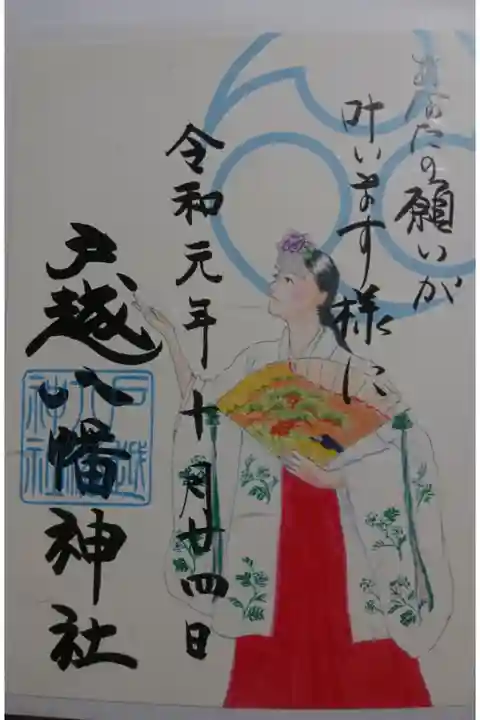 あなたの願いが
叶います様に
令和元年十月廿四日
戸越八幡神社
戸越
八幡
神社